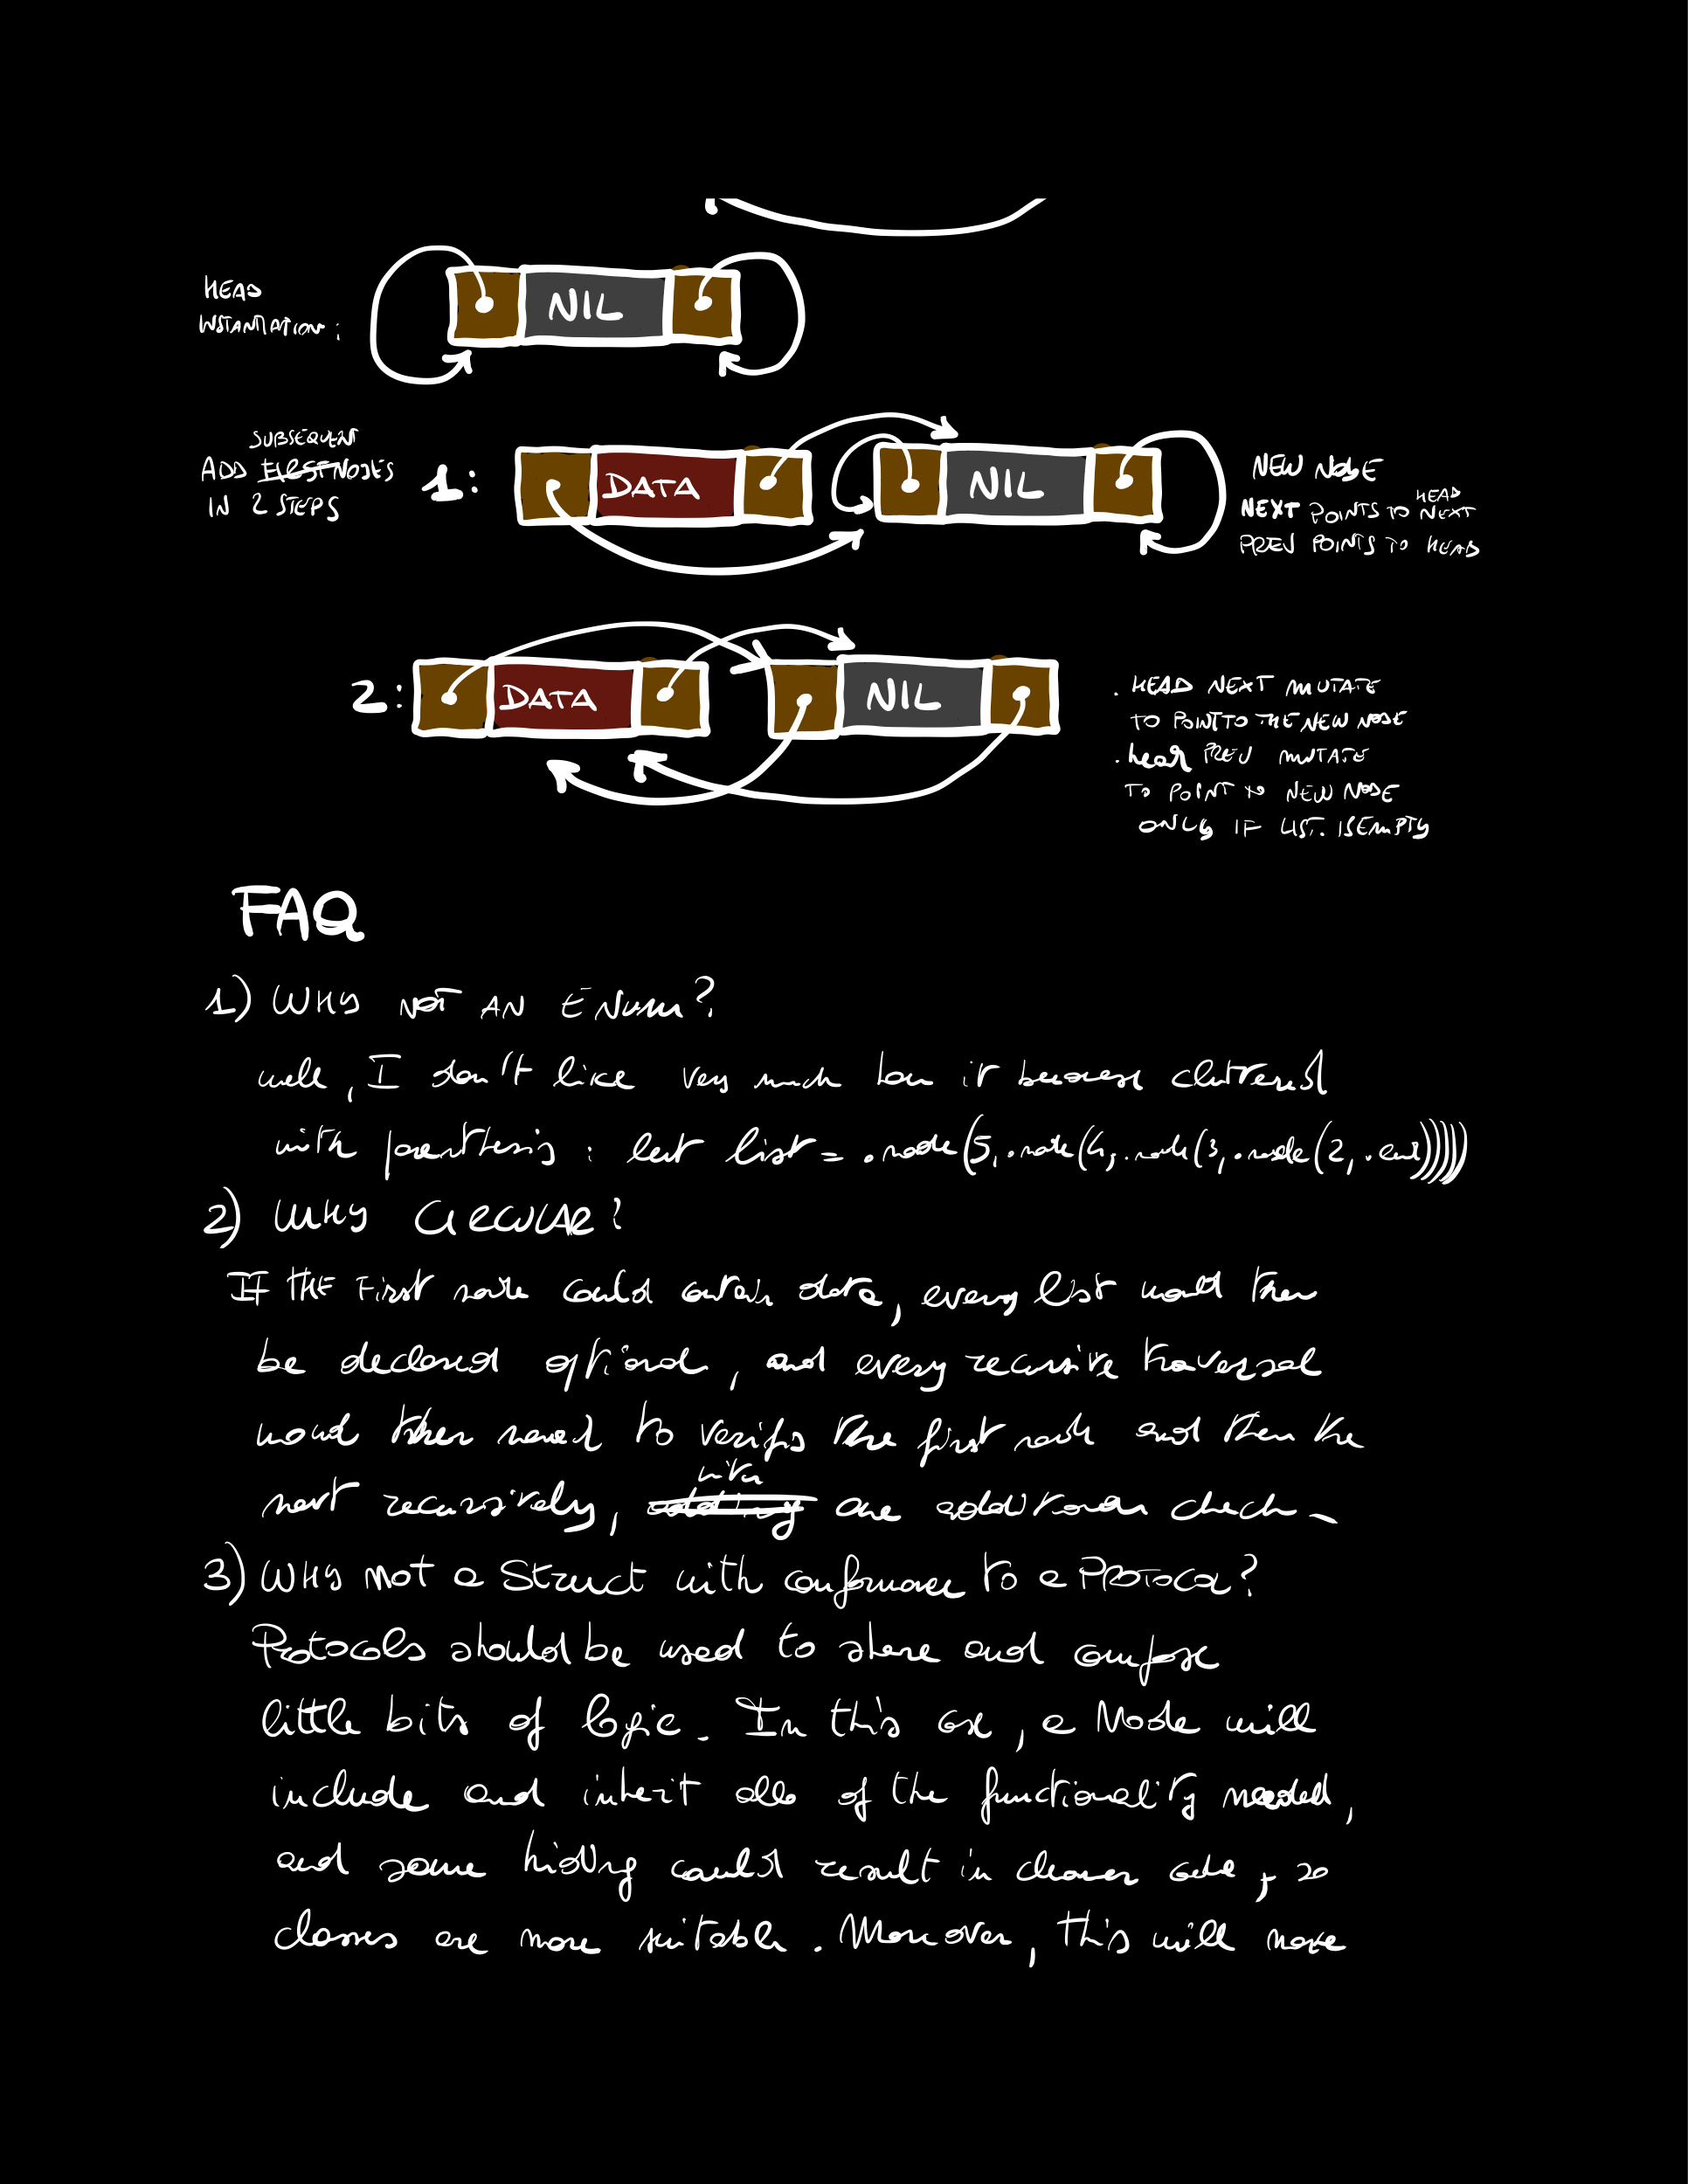 HEAD
INSTANTIATION:
NIL
SUBSEQUENT
ADD FIRST NODES
IN 2 STEPS
1:
DATA
NIL
NEW NODE
HEAD
NEXT POINTS TO NEXT
PREV POINTS TO HEAD
2:
DATA
NIL
. HEAD NEXT MUTATE
TO POINT TO THE NEW NODE
. head PREV MUTATE
TO POINT TO NEW NODE
ONLY IF LIST.ISEMPTY
FAQ
1) WHY NOT AN ENUM?
well, I don't like very much how it becomes cluttered
with parenthesis: let list = .node(5, .node(4, .node(3, .node(2, .end)))))
2) WHY CIRCULAR?
IF THE First node could contain data, every list would then
be declared optional, and every recursive traversal
would then need to verify the first node and then the
with
next recursively, adding one additional check -
3) WHY not a Struct with conformance to a PROTOCOL?
Protocols should be used to share and compose
little bits of logic. In this case, a Node will
include and inherit all of the functionality needed,
and some hiding could result in cleaner code, so
classes are more suitable. Moreover, this will make